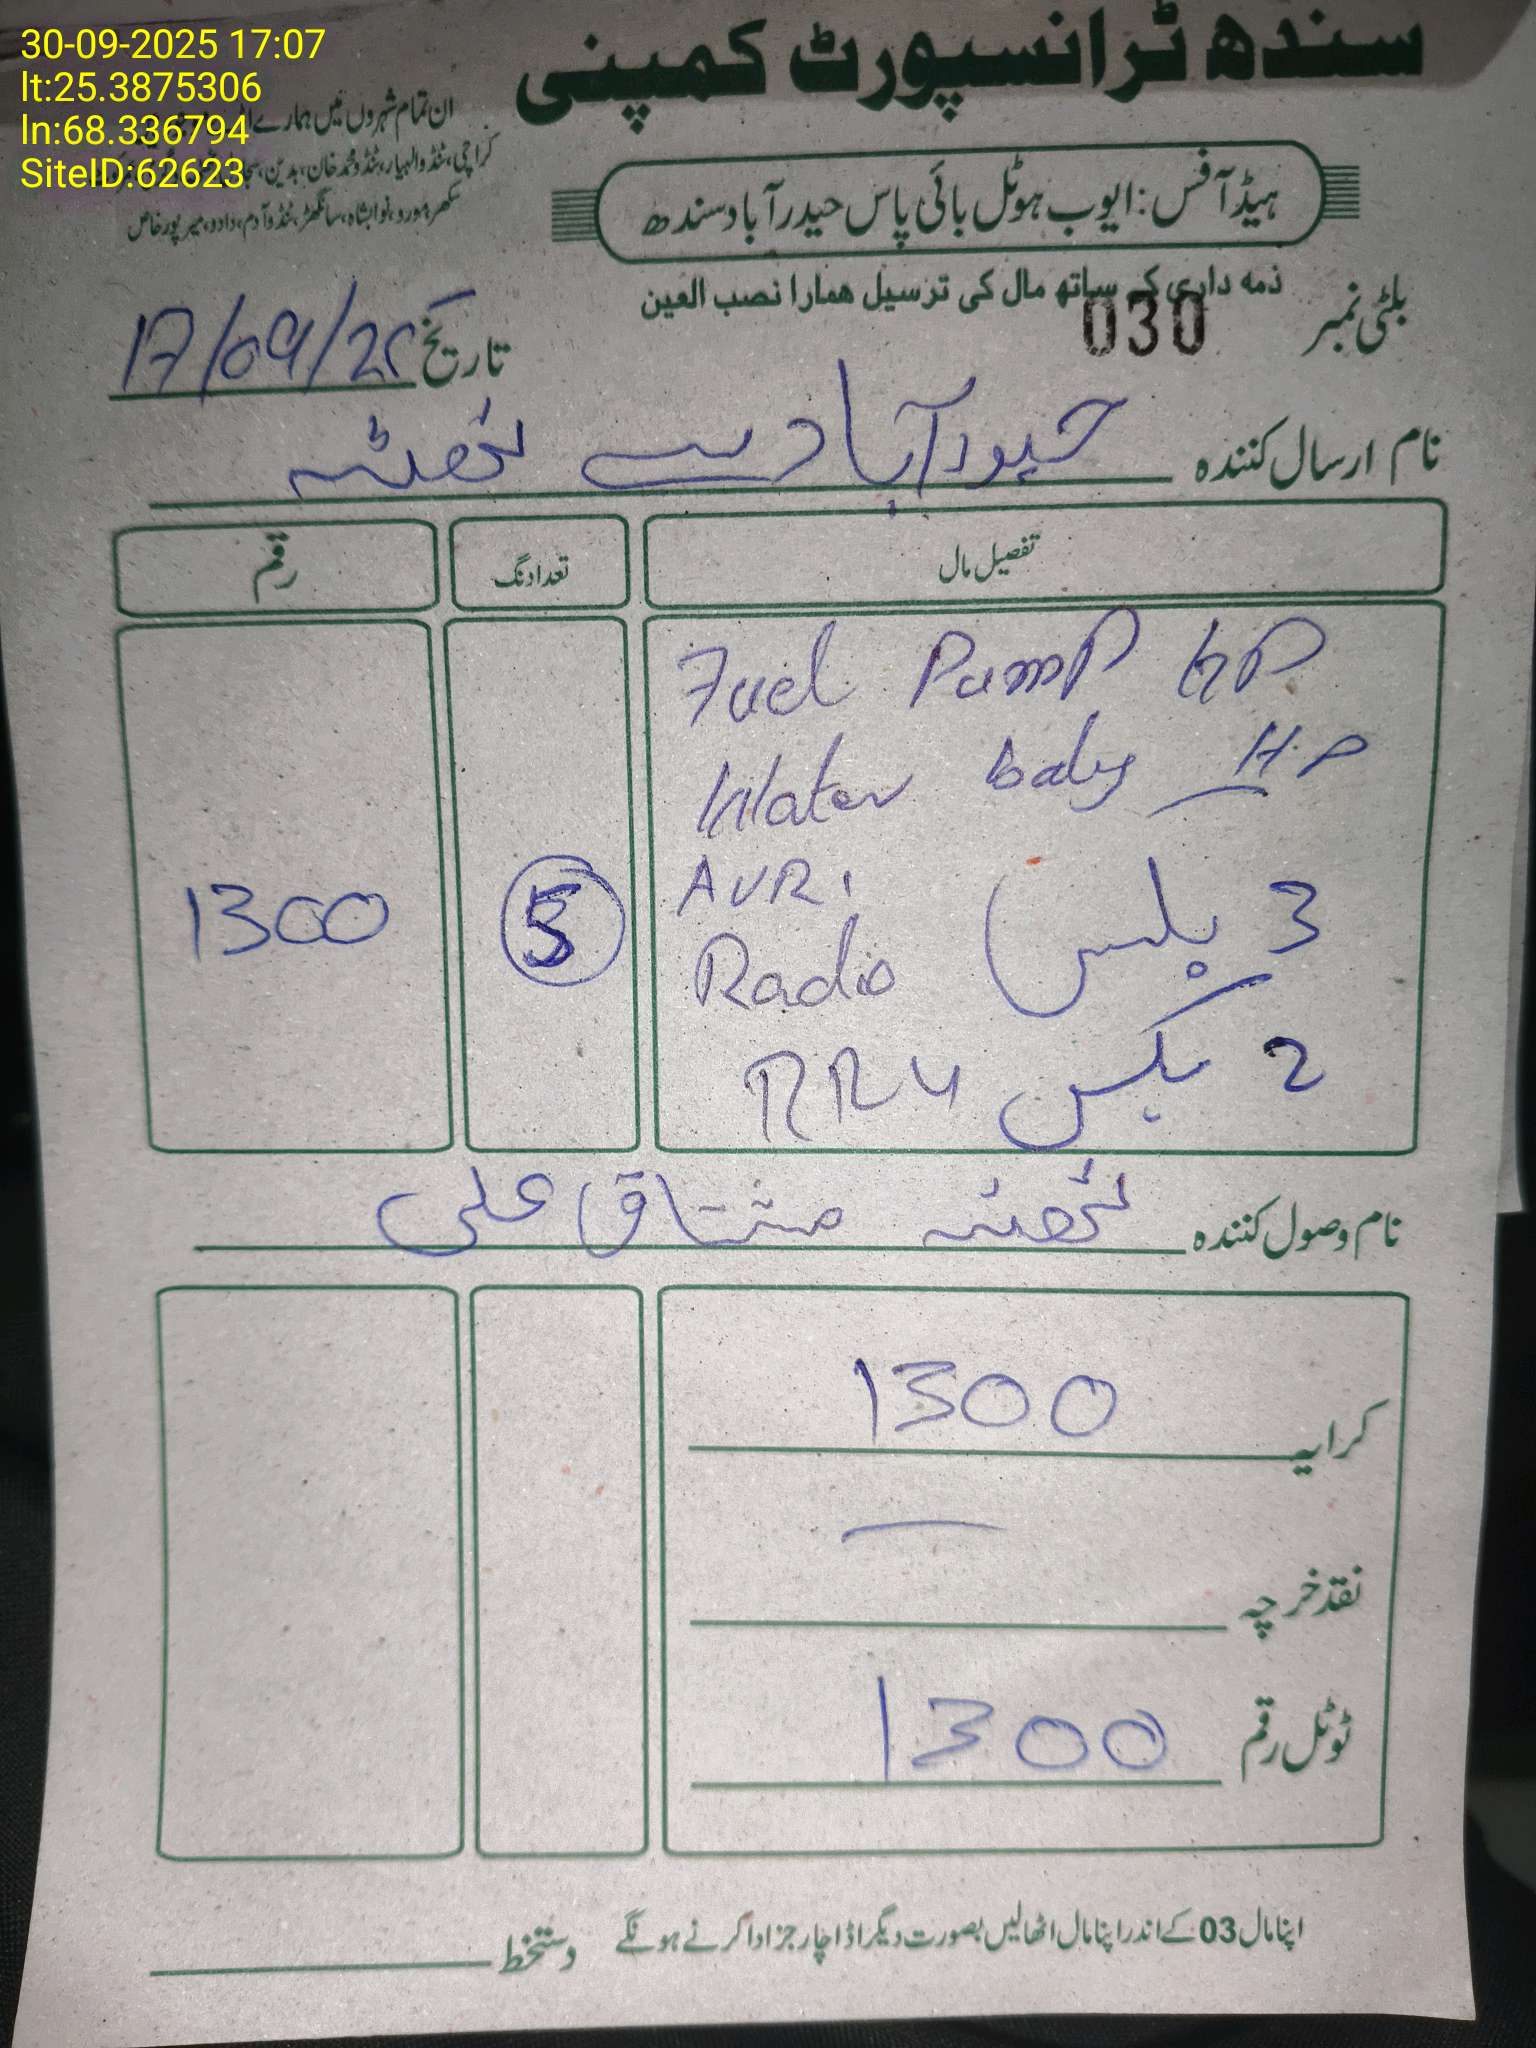 30-09-2025 17:07
lt:25.3875306
ln:68.336794
SiteID:62623
سندھ ٹرانسپورٹ کمپنی
ان تمام شہروں میں ہمارے
کراچی، ٹنڈوالہیار، ٹنڈو محمد خان، بدین،
سکھر، مورو، نوابشاہ، سانگھڑ، ٹنڈوآدم، دادو، میرپورخاص
ہیڈ آفس: ایوب ہوٹل بائی پاس حیدرآباد سندھ
ذمہ داری کے ساتھ مال کی ترسیل ہمارا نصب العین
بلٹی نمبر 030
تاریخ 17/09/25
نام ارسال کنندہ حیدرآباد سے ٹھٹہ
تفصیل مال تعداد نگ رقم
Fuel Pump HP
Water body HP
AVR.
3 پلس
Radio
2 بکس RRU
5
1300
نام وصول کنندہ ٹھٹہ مشتاق علی
کرایہ 1300
نقد خرچہ —
ٹوٹل رقم 1300
اپنا مال 03 کے اندر اپنا مال اٹھالیں بصورت دیگر اڈا چارجز ادا کرنے ہونگے
دستخط